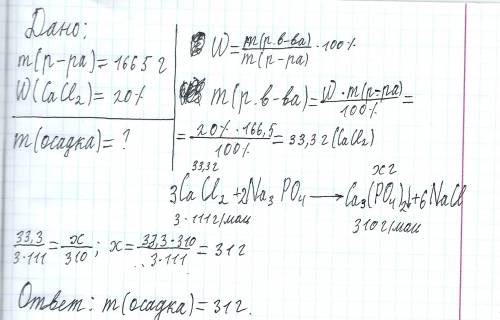 Дано:
m(р-ра)=166,5 г
W(CaCl₂)=20%
m(осадка)=?
W=m(р.в-ва)/m(р-ра)·100%
m(р.в-ва)=W·m(р-ра)/100%=
=20%·166,5/100%=33,3г(CaCl₂)
33,3г xг
3CaCl₂+2Na₃PO₄→Ca₃(PO₄)₂↓+6NaCl
3·111г/моль 310г/моль
33,3/3·111=x/310; x=33,3·310/3·111=31г
Ответ: m(осадка)=31г.